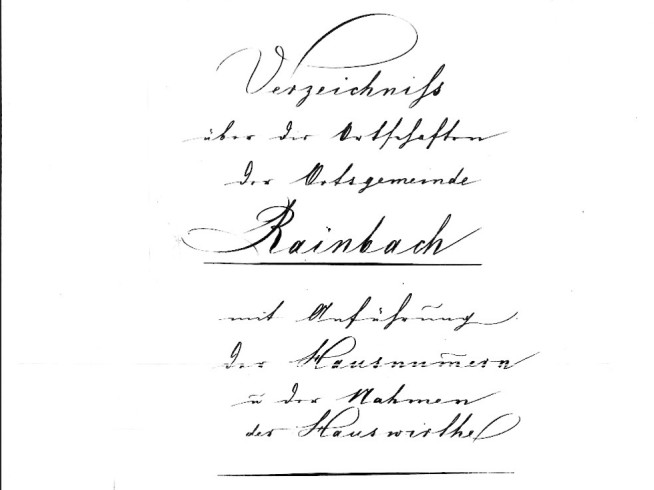 Verzeichniſs
über die Ortschaften
der Ortsgemeinde
Rainbach
mit Anführung
der Hausnum̅ern
u der Nahmen
der Hauswirthe